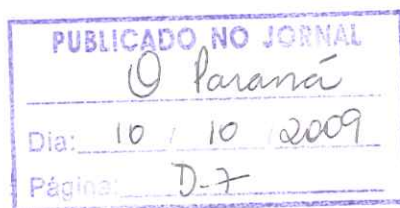 PUBLICADO NO JORNAL
O Paraná
Dia: 10 / 10 / 2009
Página: D-7